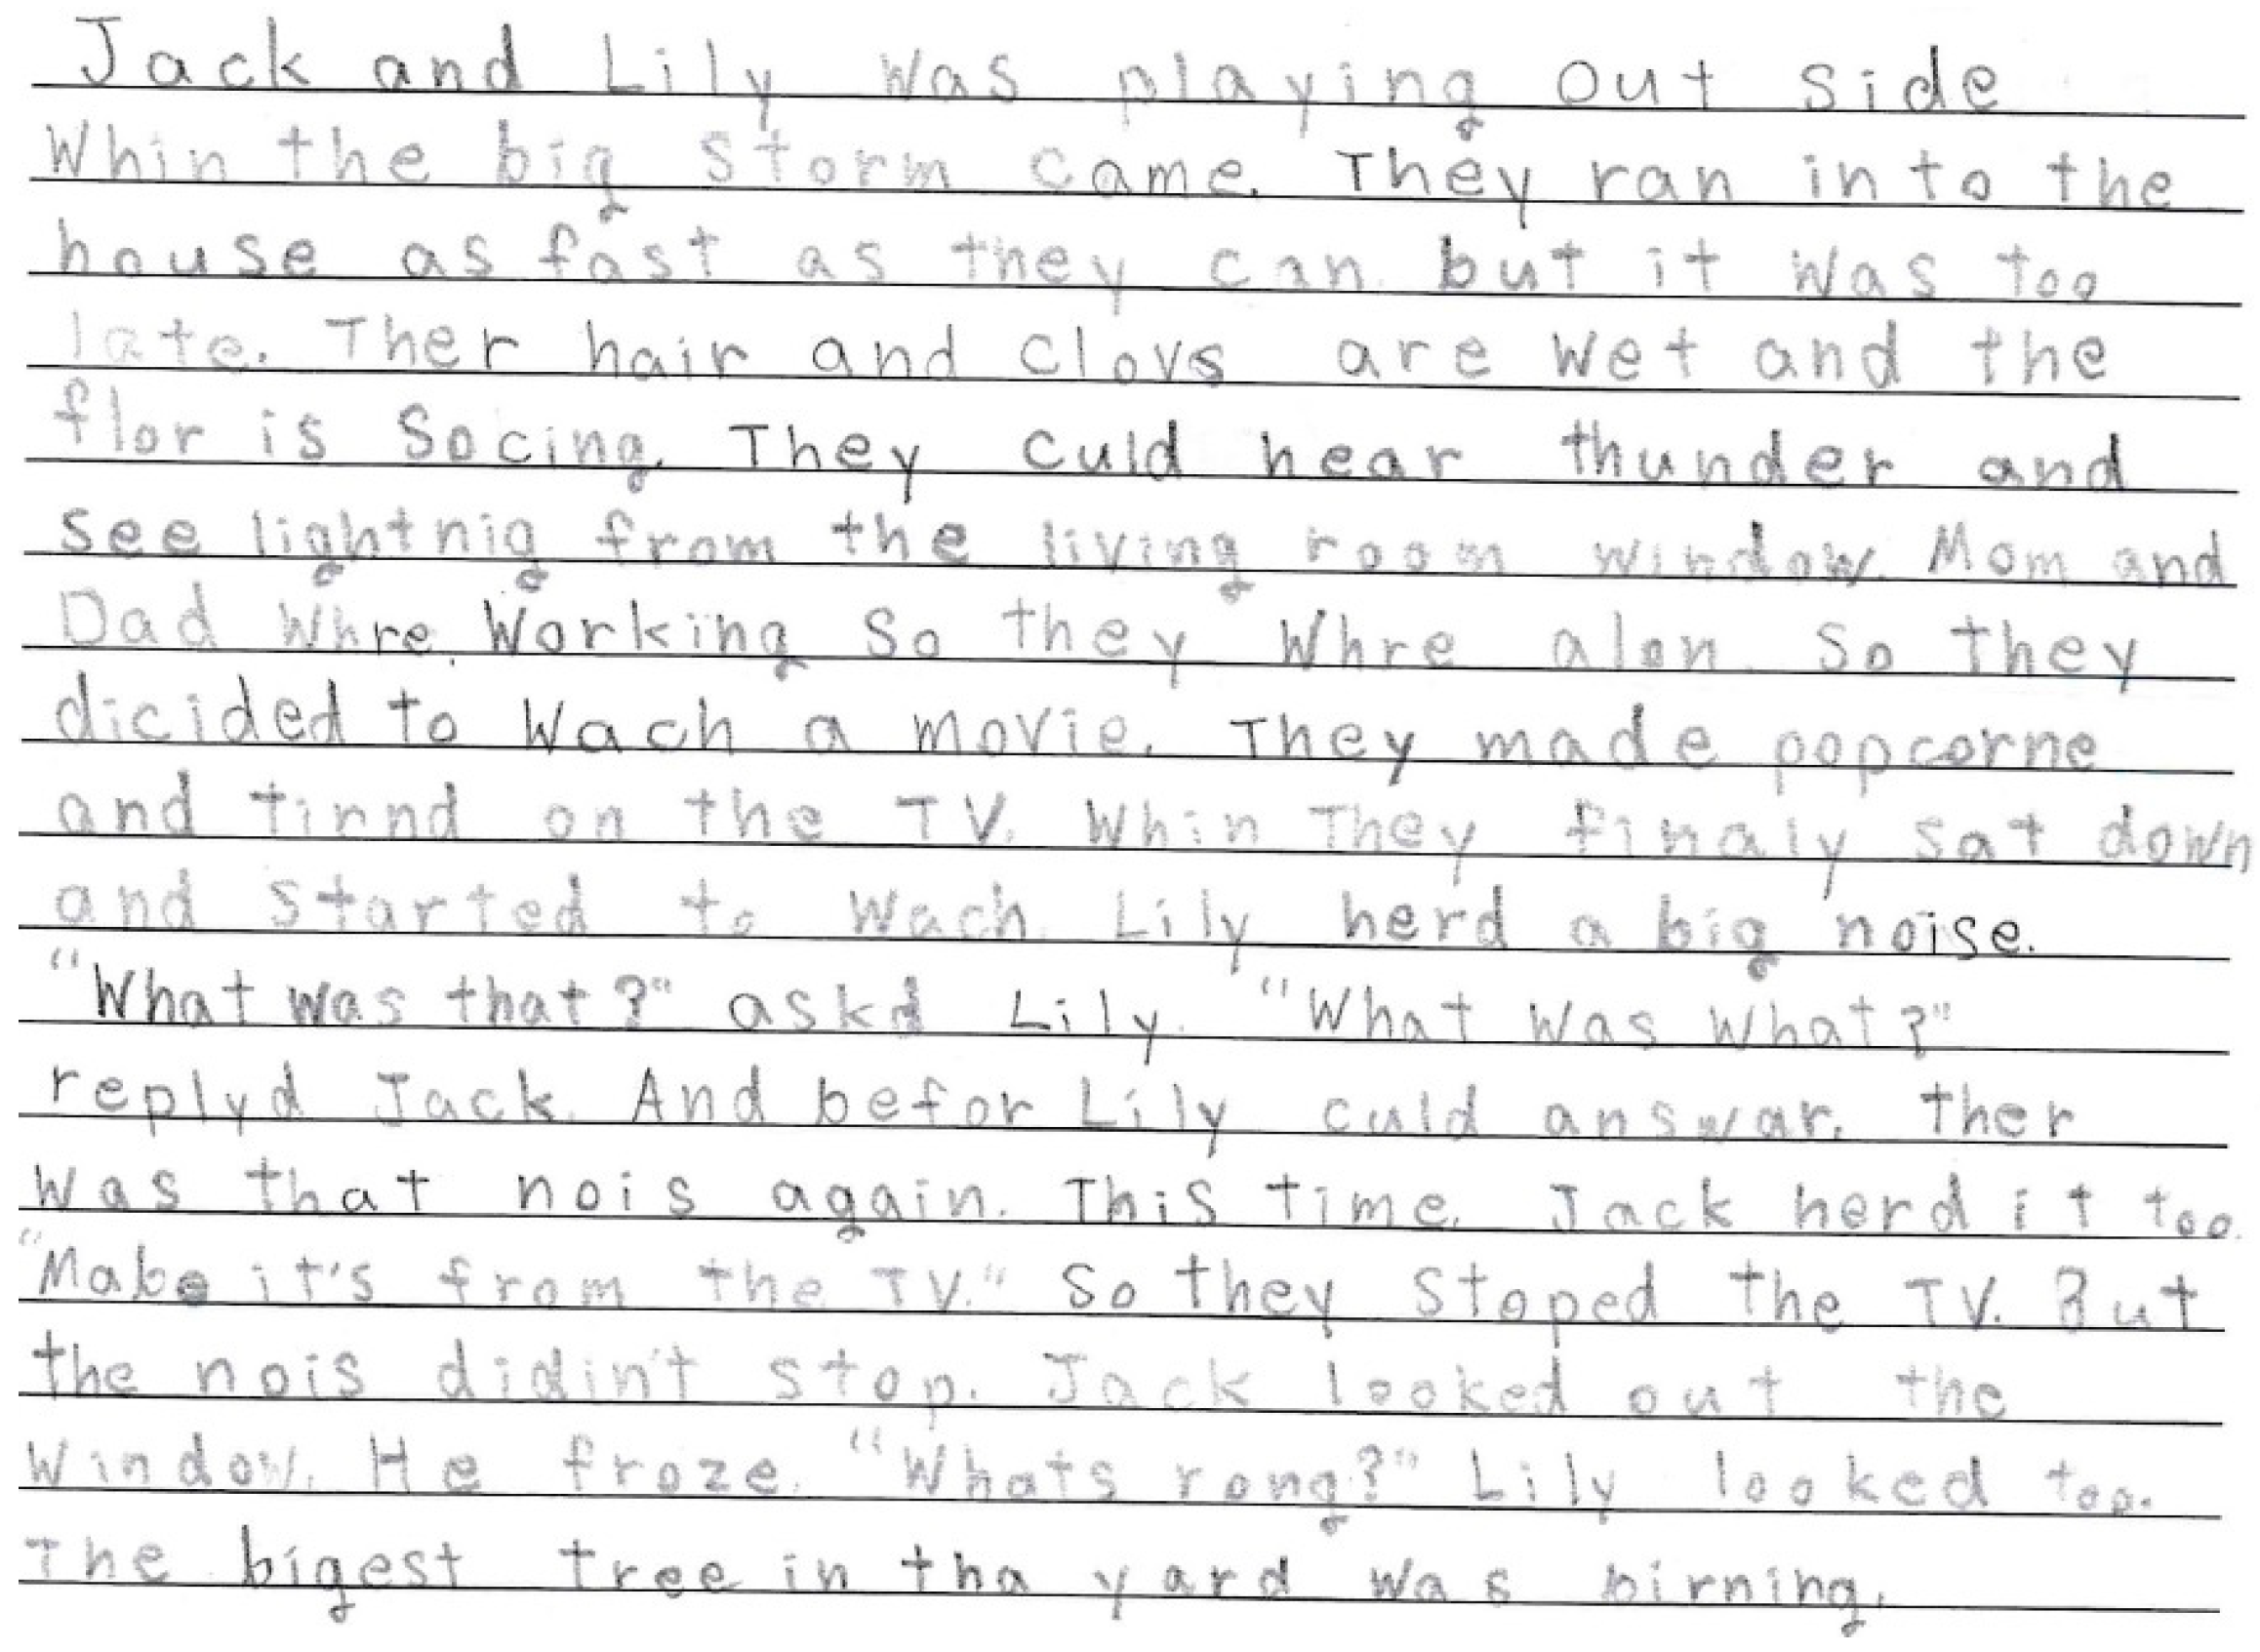 Jack and Lily was playing out side
Whin the big storm came. They ran into the
house as fast as they can but it was too
late. Ther hair and clovs are wet and the
flor is socing. They culd hear thunder and
see lightnig from the living room window. Mom and
Dad whre working so they whre alon. So they
dicided to wach a movie. They made popcorne
and tirnd on the TV. Whin They finaly sat down
and started to wach. Lily herd a big noise.
"What was that?" askd Lily. "What was what?"
replyd Jack. And befor Lily culd answar, ther
was that nois again. This time, Jack herd it too.
"Mabe it's from the TV." So they stoped the TV. But
the nois didin't stop. Jack looked out the
window. He froze. "Whats rong?" Lily looked too.
The bigest tree in tha yard was birning.